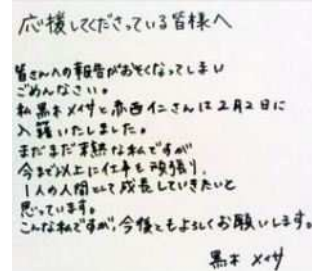 応援してくださっている皆様へ
皆さんへの報告がおそくなってしまい
ごめんなさい。
私黒木メイサと赤西仁さんは2月2日に
入籍いたしました。
まだまだ未熟な私ですが
今まで以上に仕事も頑張り、
1人の人間として成長していきたいと
思っています。
こんな私ですが、今後ともよろしくお願いします。
黒木メイサ